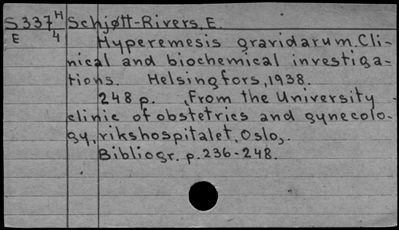 S337 H Schjøtt-Rivers, E.
E 4 Hyperemesis gravidarum. Cli-
nical and biochemical investiga-
tions. Helsingfors, 1938.
248 p. ,From the University
clinic of obstetrics and gynecolo-
gy, rikshospitalet, Oslo,.
Bibliogr. p. 236-248.